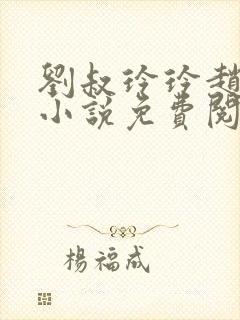 劉叔玲玲趙
小說免費閱
楊福成